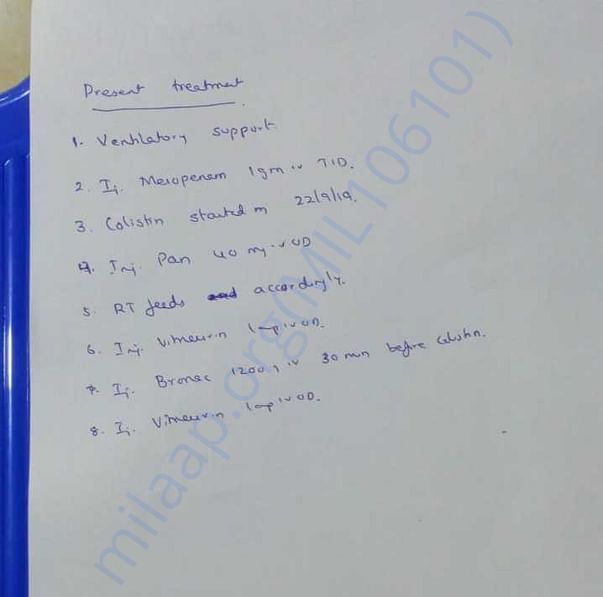 Present treatment
1. Ventilatory support
2. Inj. Meropenem 1gm iv TID.
3. Colistin started on 22/9/19.
4. Inj. Pan 40 mg iv OD
5. RT feeds accordingly.
6. Inj. Vitneurin 1amp iv OD.
7. Inj. Bronac 1200 iv 30 min before Colistin.
8. Inj. Vitneurin 1amp iv OD.
milaap.org(MIL106101)